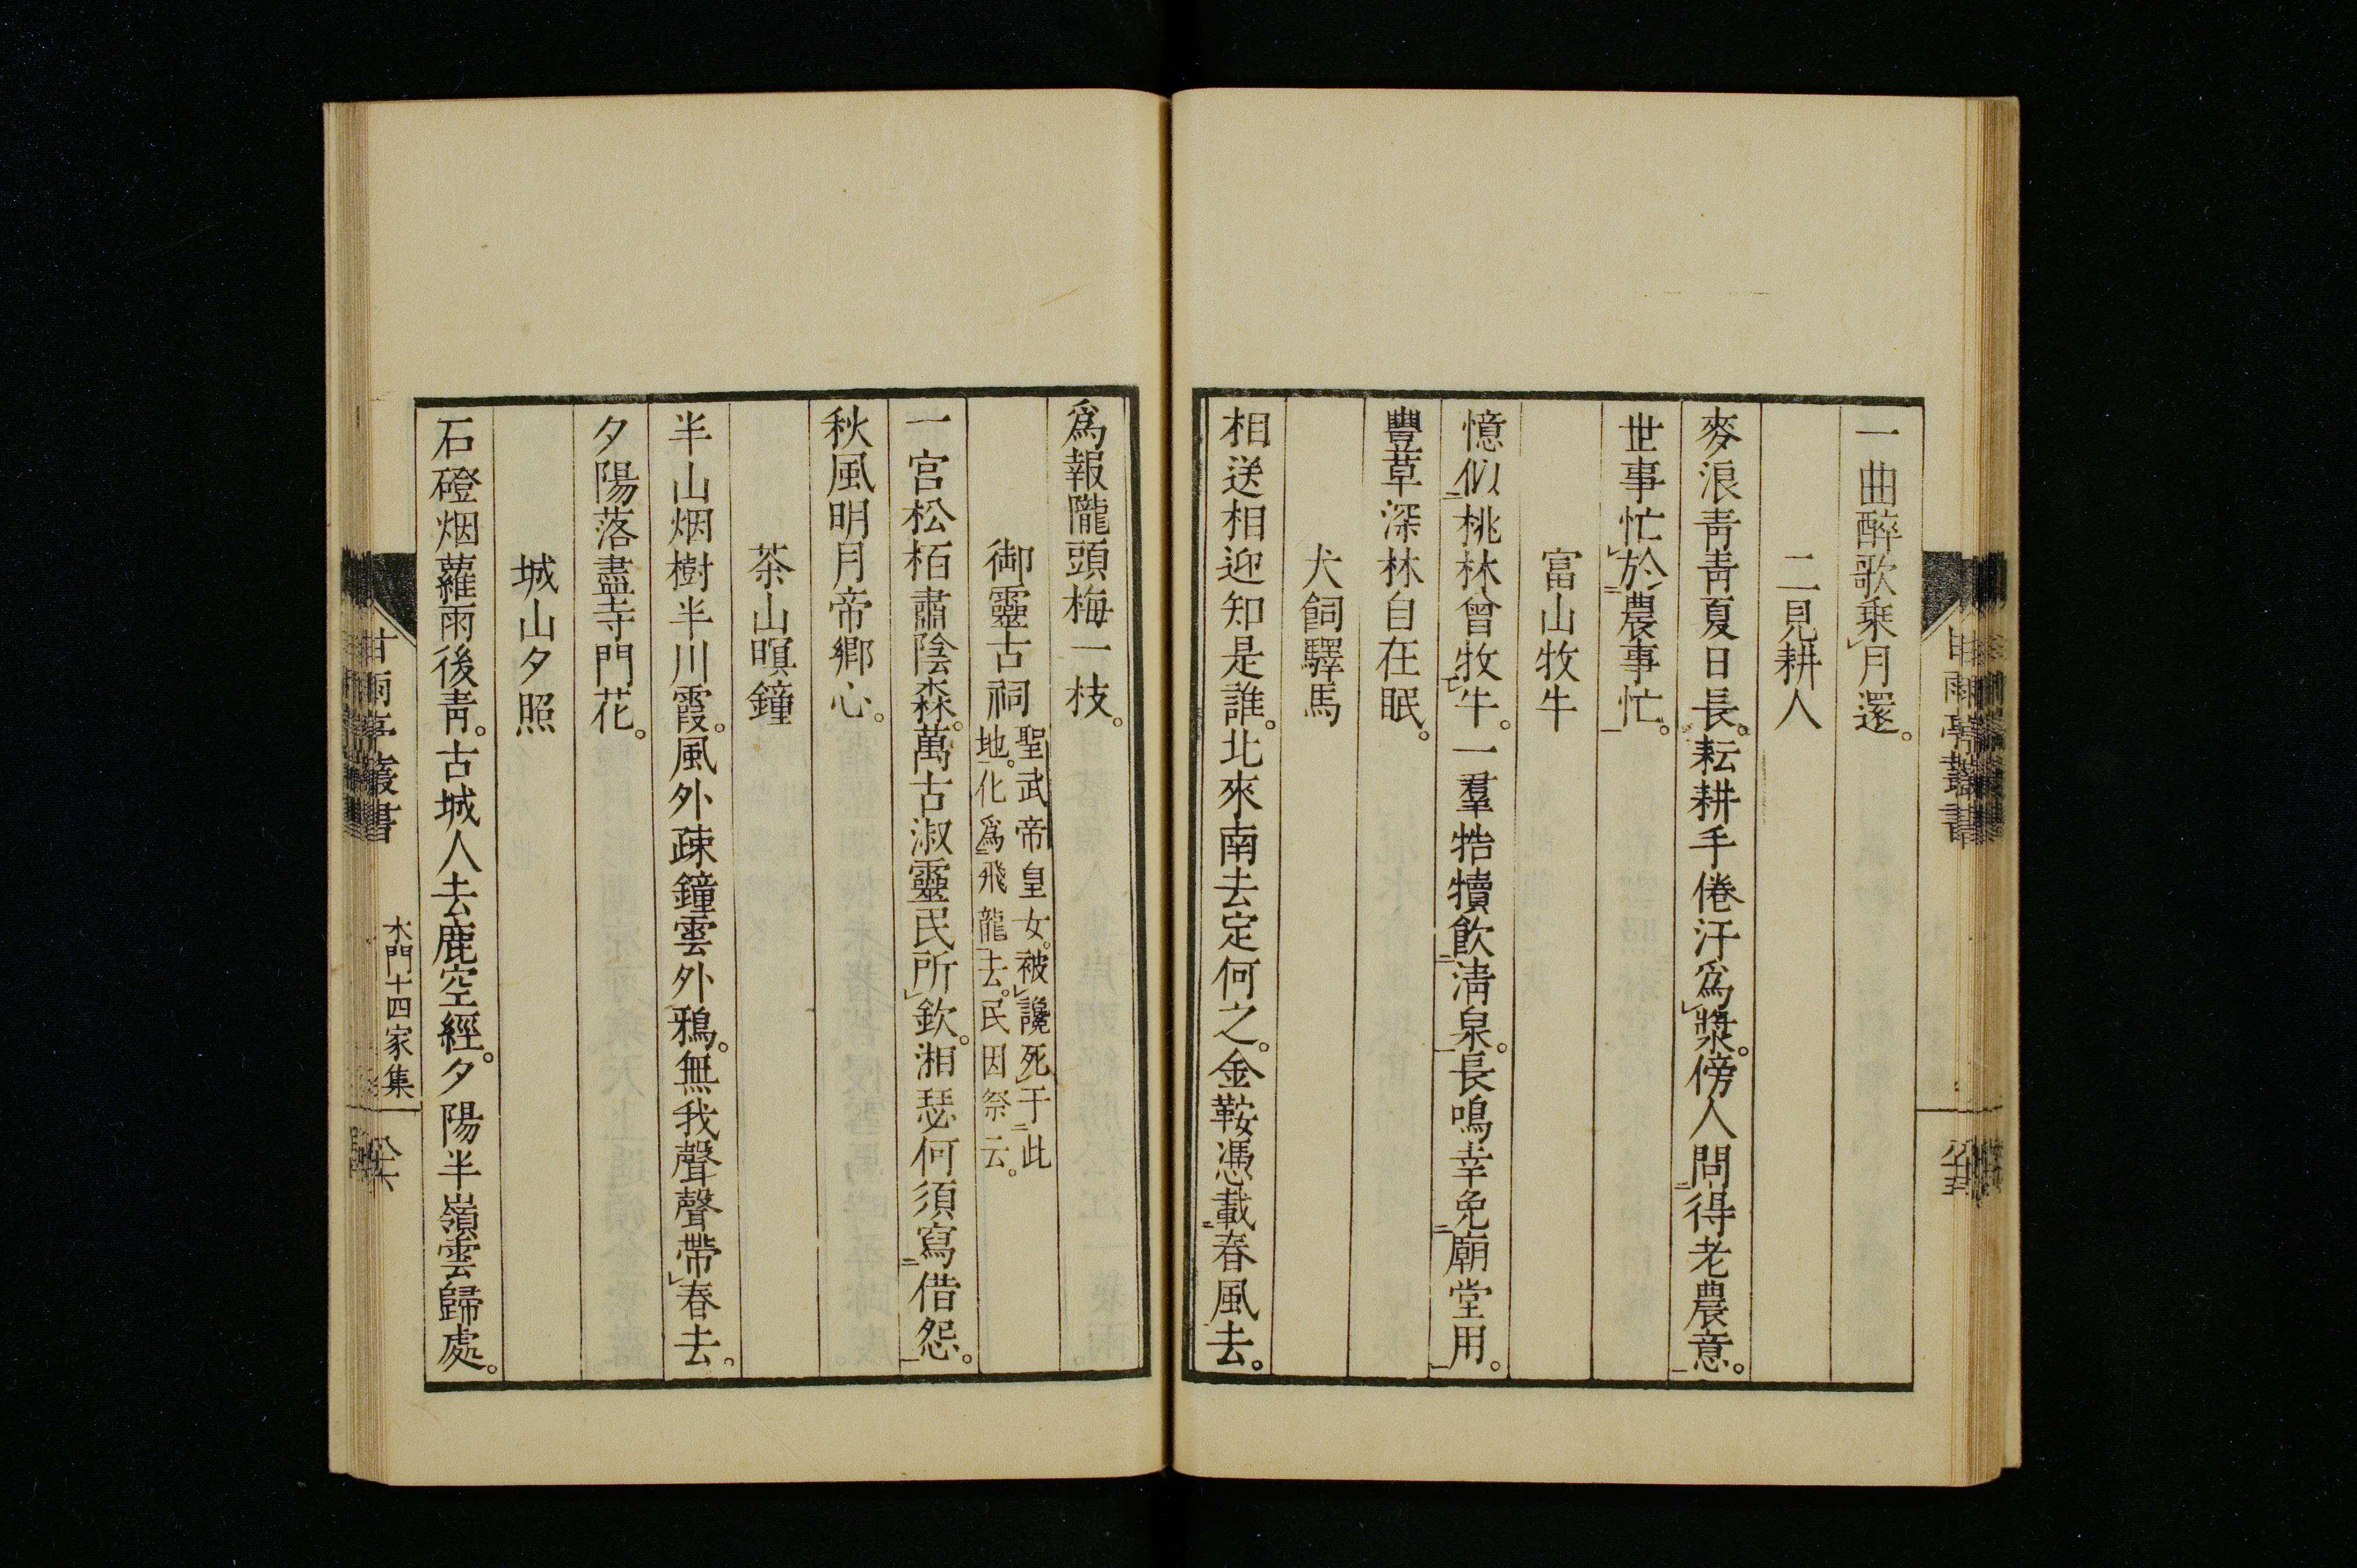 一曲醉歌乗月還。
二見耕人
麥浪靑靑夏日長。耘耕手倦汗爲漿。傍人問得老農意。
世事忙於農事忙。
富山牧牛
憶似桃林曾牧牛。一羣牿犢飮淸泉。長鳴幸免廟堂用。
豐草深林自在眠。
犬飼驛馬
相送相迎知是誰。北來南去定何之。金鞍憑載春風去。
爲報隴頭梅一枝。
御靈古祠 聖武帝皇女。被讒死于此
地。化爲飛龍去。民因祭云。
一宮松栢肅陰森。萬古淑靈民所欽。湘瑟何須寫借怨。
秋風明月帝鄕心。
茶山暝鐘
半山烟樹半川霞。風外疎鐘雲外鴉。無我聲聲帶春去。
夕陽落盡寺門花。
城山夕照
石磴烟蘿雨後靑。古城人去鹿空經。夕陽半嶺雲歸處。
甘雨亭叢書
木門十四家集
甘雨亭叢書